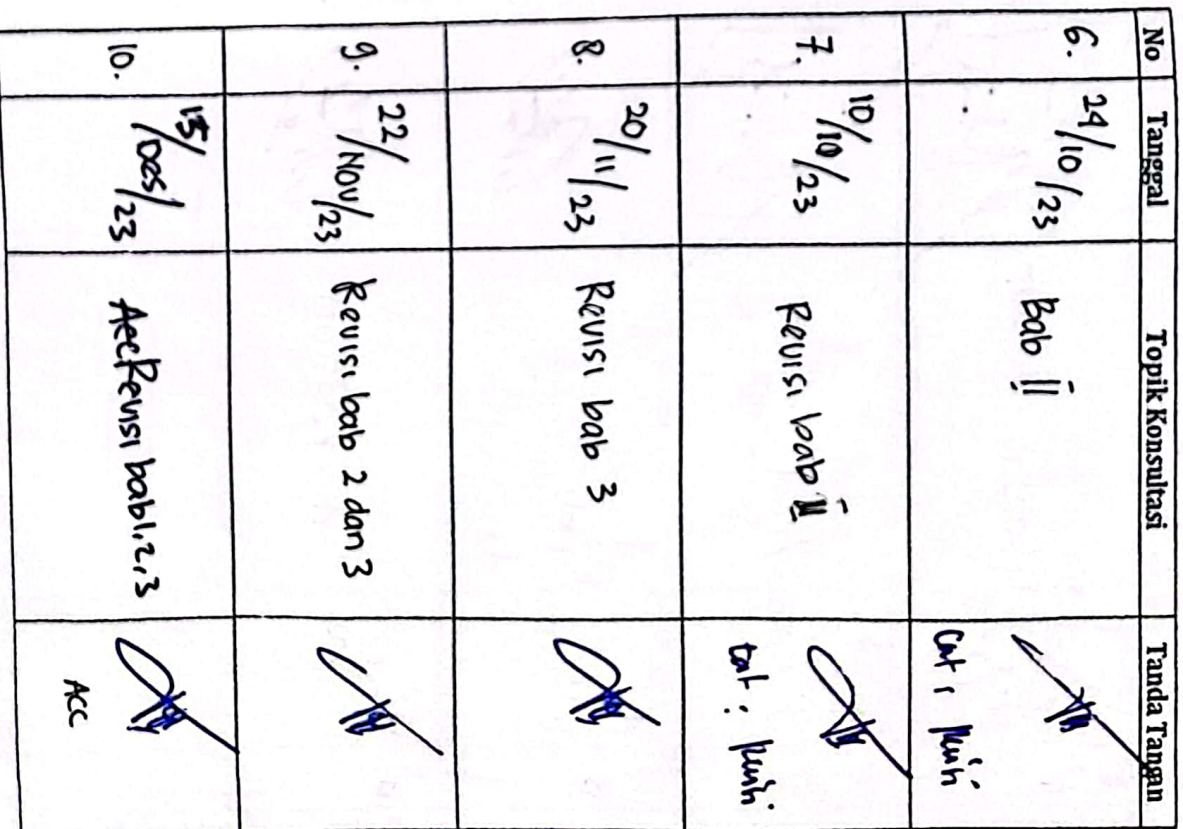 No Tanggal Topik Konsultasi Tanda Tangan
6. 24/10/23 Bab II
7. 10/10/23 Revisi bab II
8. 20/11/23 Revisi bab 3
9. 22/Nov/23 Revisi bab 2 dan 3
10. 15/Des/23 Acc Revisi bab 1, 2, 3
ACC